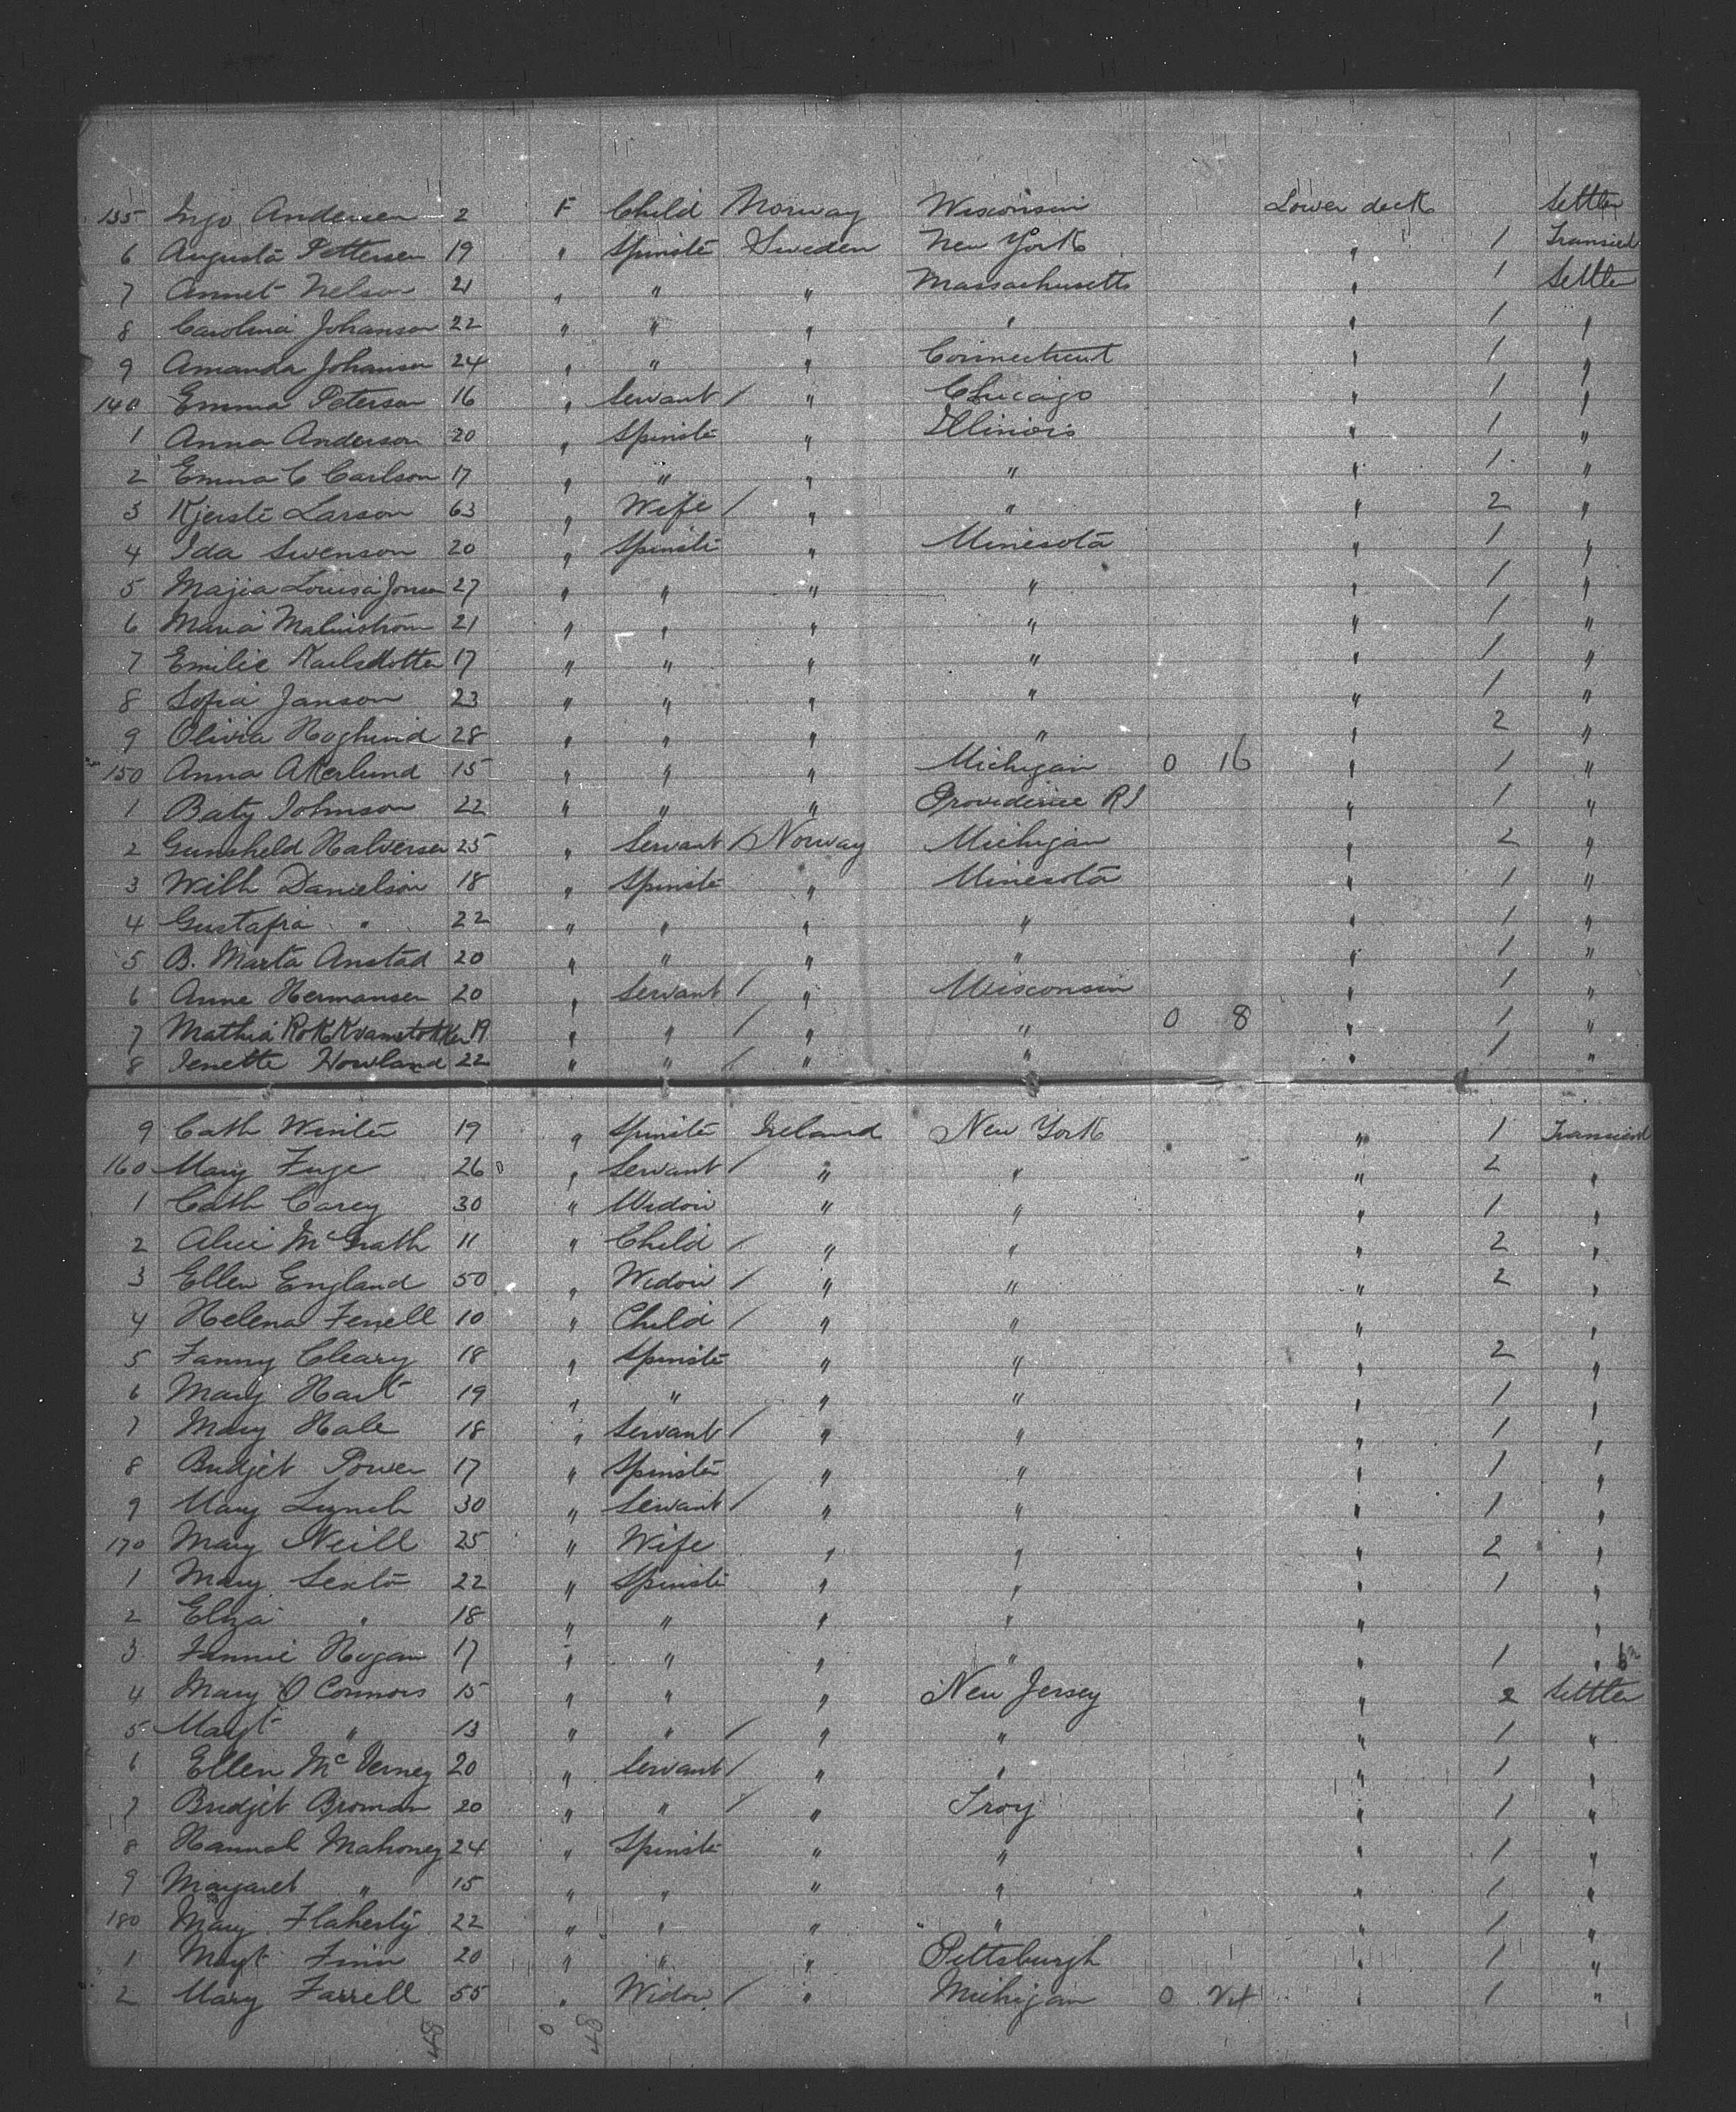 135 Ingo Andersen 2 F Child Norway Wisconsin Lower deck Settler
6 Augusta Pettersen 19 " Spinste Sweden New York " 1 Transient
7 Annet Nelson 21 " " " Massachusetts " 1 Settler
8 Carolina Johanson 22 " " " " " 1 "
9 Amanda Johanson 24 " " " Connecticut " 1 "
140 Emma Peterson 16 " Servant / " Chicago " 1 "
1 Anna Anderson 20 " Spinste " Illinois " 1 "
2 Emma C Carlson 17 " " " " " 1 "
3 Kjerste Larson 63 " Wife / " " " 2 "
4 Ida Swenson 20 " Spinste " Minesota " 1 "
5 Majia Louisa Jonson 27 " " " " " 1 "
6 Maria Malmstrom 21 " " " " " 1 "
7 Emilie Karlsdotter 17 " " " " " 1 "
8 Sofia Janson 23 " " " " " 1 "
9 Olivia Hoglund 28 " " " " " 2 "
150 Anna Akerlund 15 " " " Michigan 0 16 " 1 "
1 Baty Johnson 22 " " " Providence RI " 1 "
2 Gunsheld Halversen 25 " Servant / Norway Michigan " 2 "
3 Wilh Danielson 18 " Spinste " Minesota " 1 "
4 Gustafia " 22 " " " " " 1 "
5 B. Marta Anstad 20 " " " " " 1 "
6 Anne Hermansen 20 " Servant / " Wisconsin " 1 "
7 Mathia 19 " " / " " 0 8 " 1 "
8 Jenette Howland 22 " " / " " " 1 "
9 Cath Winte 19 " Spinste Ireland New York " 1 Transient
160 Mary Fuge 26 " Servant / " " " 2 "
1 Cath Carey 30 " Widow " " " 1 "
2 Alice McGrath 11 " Child / " " " 2 "
3 Ellen England 50 " Widow / " " " 2 "
4 Helena Fenell 10 " Child / " " " "
5 Fanny Cleary 18 " Spinste " " " 2 "
6 Mary Hart 19 " " " " " 1 "
7 Mary Hale 18 " Servant / " " " 1 "
8 Bridjet Power 17 " Spinste " " " 1 "
9 Mary Lynch 30 " Servant / " " " 1 "
170 Mary Neill 25 " Wife " " " 2 "
1 Mary Sexto 22 " Spinste " " " 1 "
2 Eliza " 18 " " " " " "
3 Fannie Hogan 17 " " " " " 1 "
4 Mary O Connors 15 " " " New Jersey " 2 Settler
5 Magt " 13 " " / " " " 1 "
6 Ellen McVerney 20 " Servant / " " " 1 "
7 Bridjet Broman 20 " " / " Troy " 1 "
8 Hannah Mahoney 24 " Spinste " " " 1 "
9 Margaret " 15 " " " " " 1 "
180 Mary Flaherty 22 " " " " " 1 "
1 Magt Finn 20 " " " Pittsburgh " 1 "
2 Mary Farrell 55 " Widow / " Michigan 0 " 1 "
48 0 48